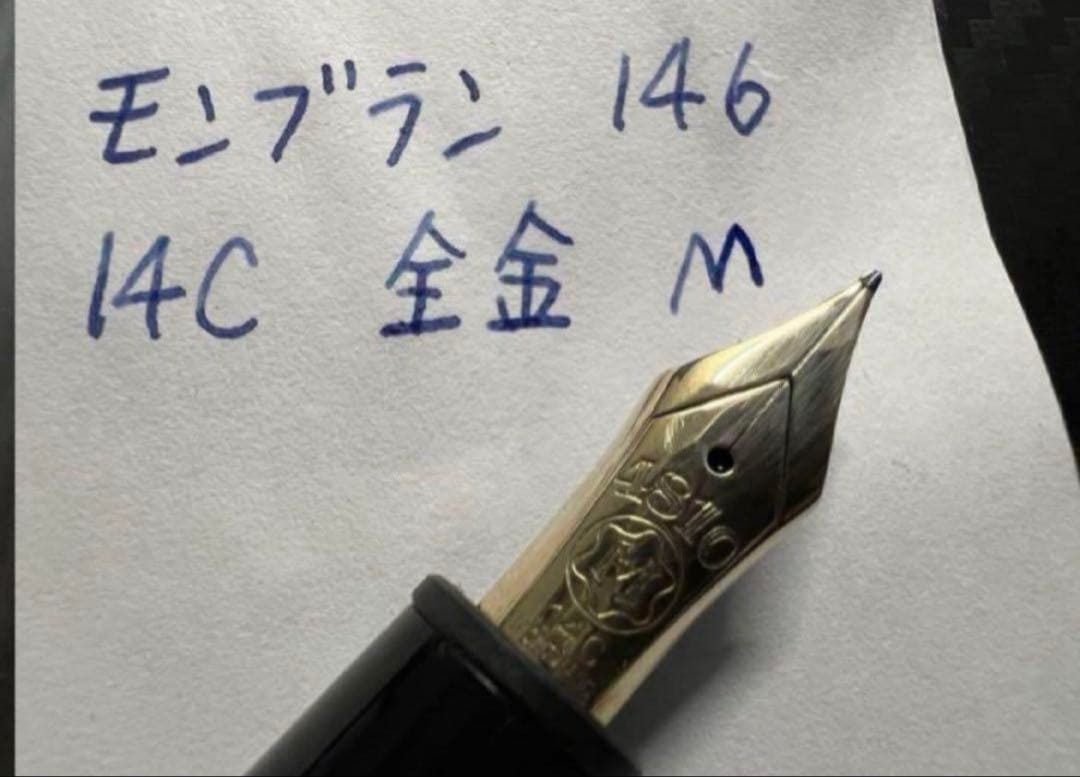 モンブラン 146
14C 全金 M
4810
M
14C